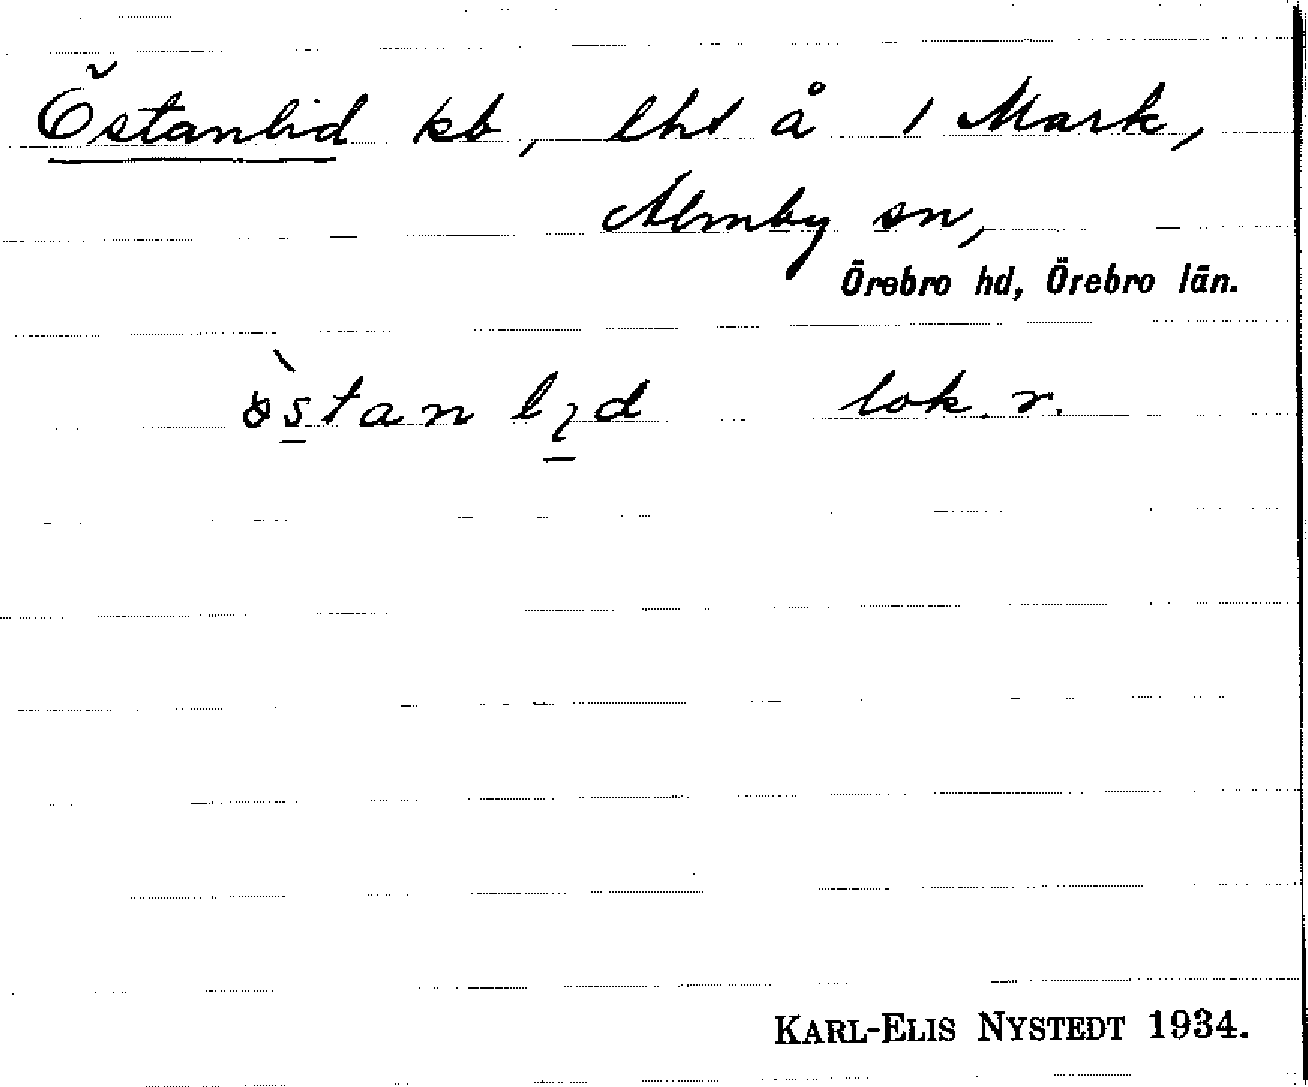 Östanlid kb, lht å 1 Mark,
Almby sn,
Örebro hd, Örebro län.
lok. r.
KARL-ELIS NYSTEDT 1934.